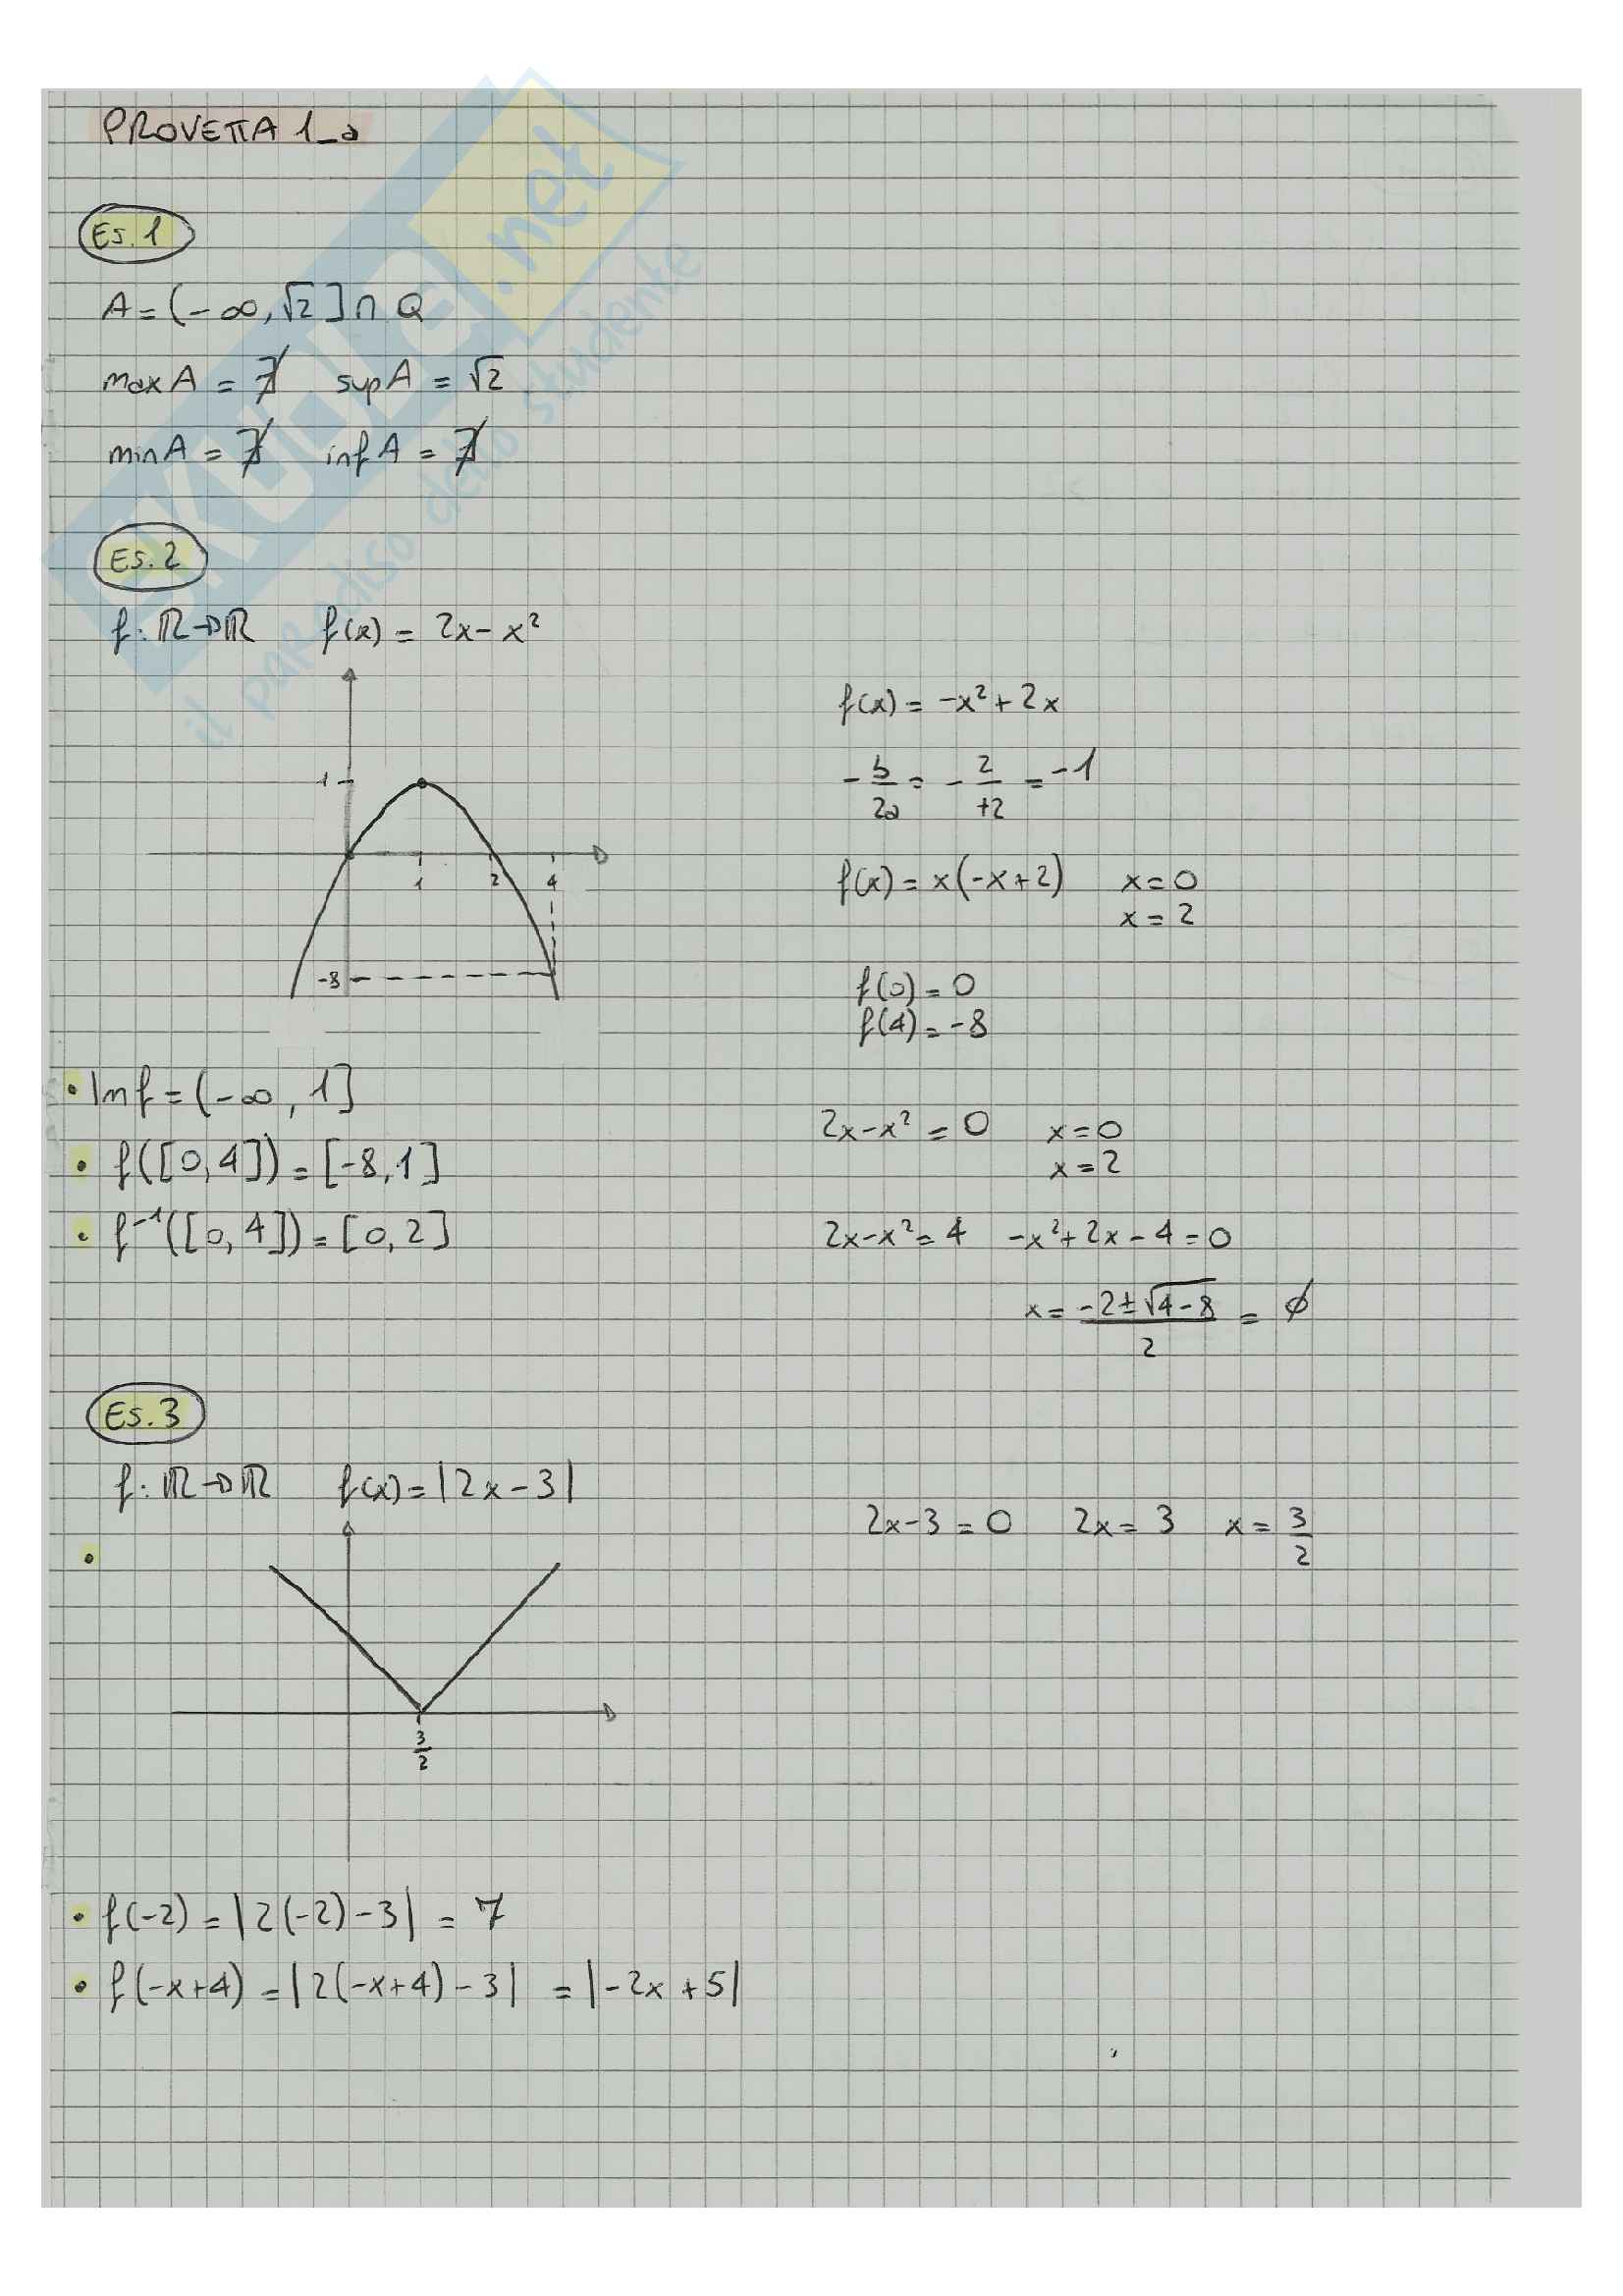 PROVETTA 1_a
Es. 1
A = (-∞, √2 ] ∩ Q
max A = ∄ sup A = √2
min A = ∄ inf A = ∄
Es. 2
f: ℝ→ℝ f(x) = 2x - x²
f(x) = -x² + 2x
1
-b/2a = -2/+2 = -1
1 2 4
f(x) = x(-x+2) x = 0
x = 2
-8
f(0) = 0
f(4) = -8
• Im f = (-∞, 1]
2x - x² = 0 x = 0
x = 2
• f([0,4]) = [-8,1]
• f⁻¹([0,4]) = [0,2]
2x - x² = 4 -x² + 2x - 4 = 0
x = (-2 ± √4-8)/2 = ∅
Es. 3
f: ℝ→ℝ f(x) = |2x - 3|
2x - 3 = 0 2x = 3 x = 3/2
•
3/2
• f(-2) = |2(-2) - 3| = 7
• f(-x+4) = |2(-x+4) - 3| = |-2x + 5|
SKUOLA.net
il paradiso dello studente